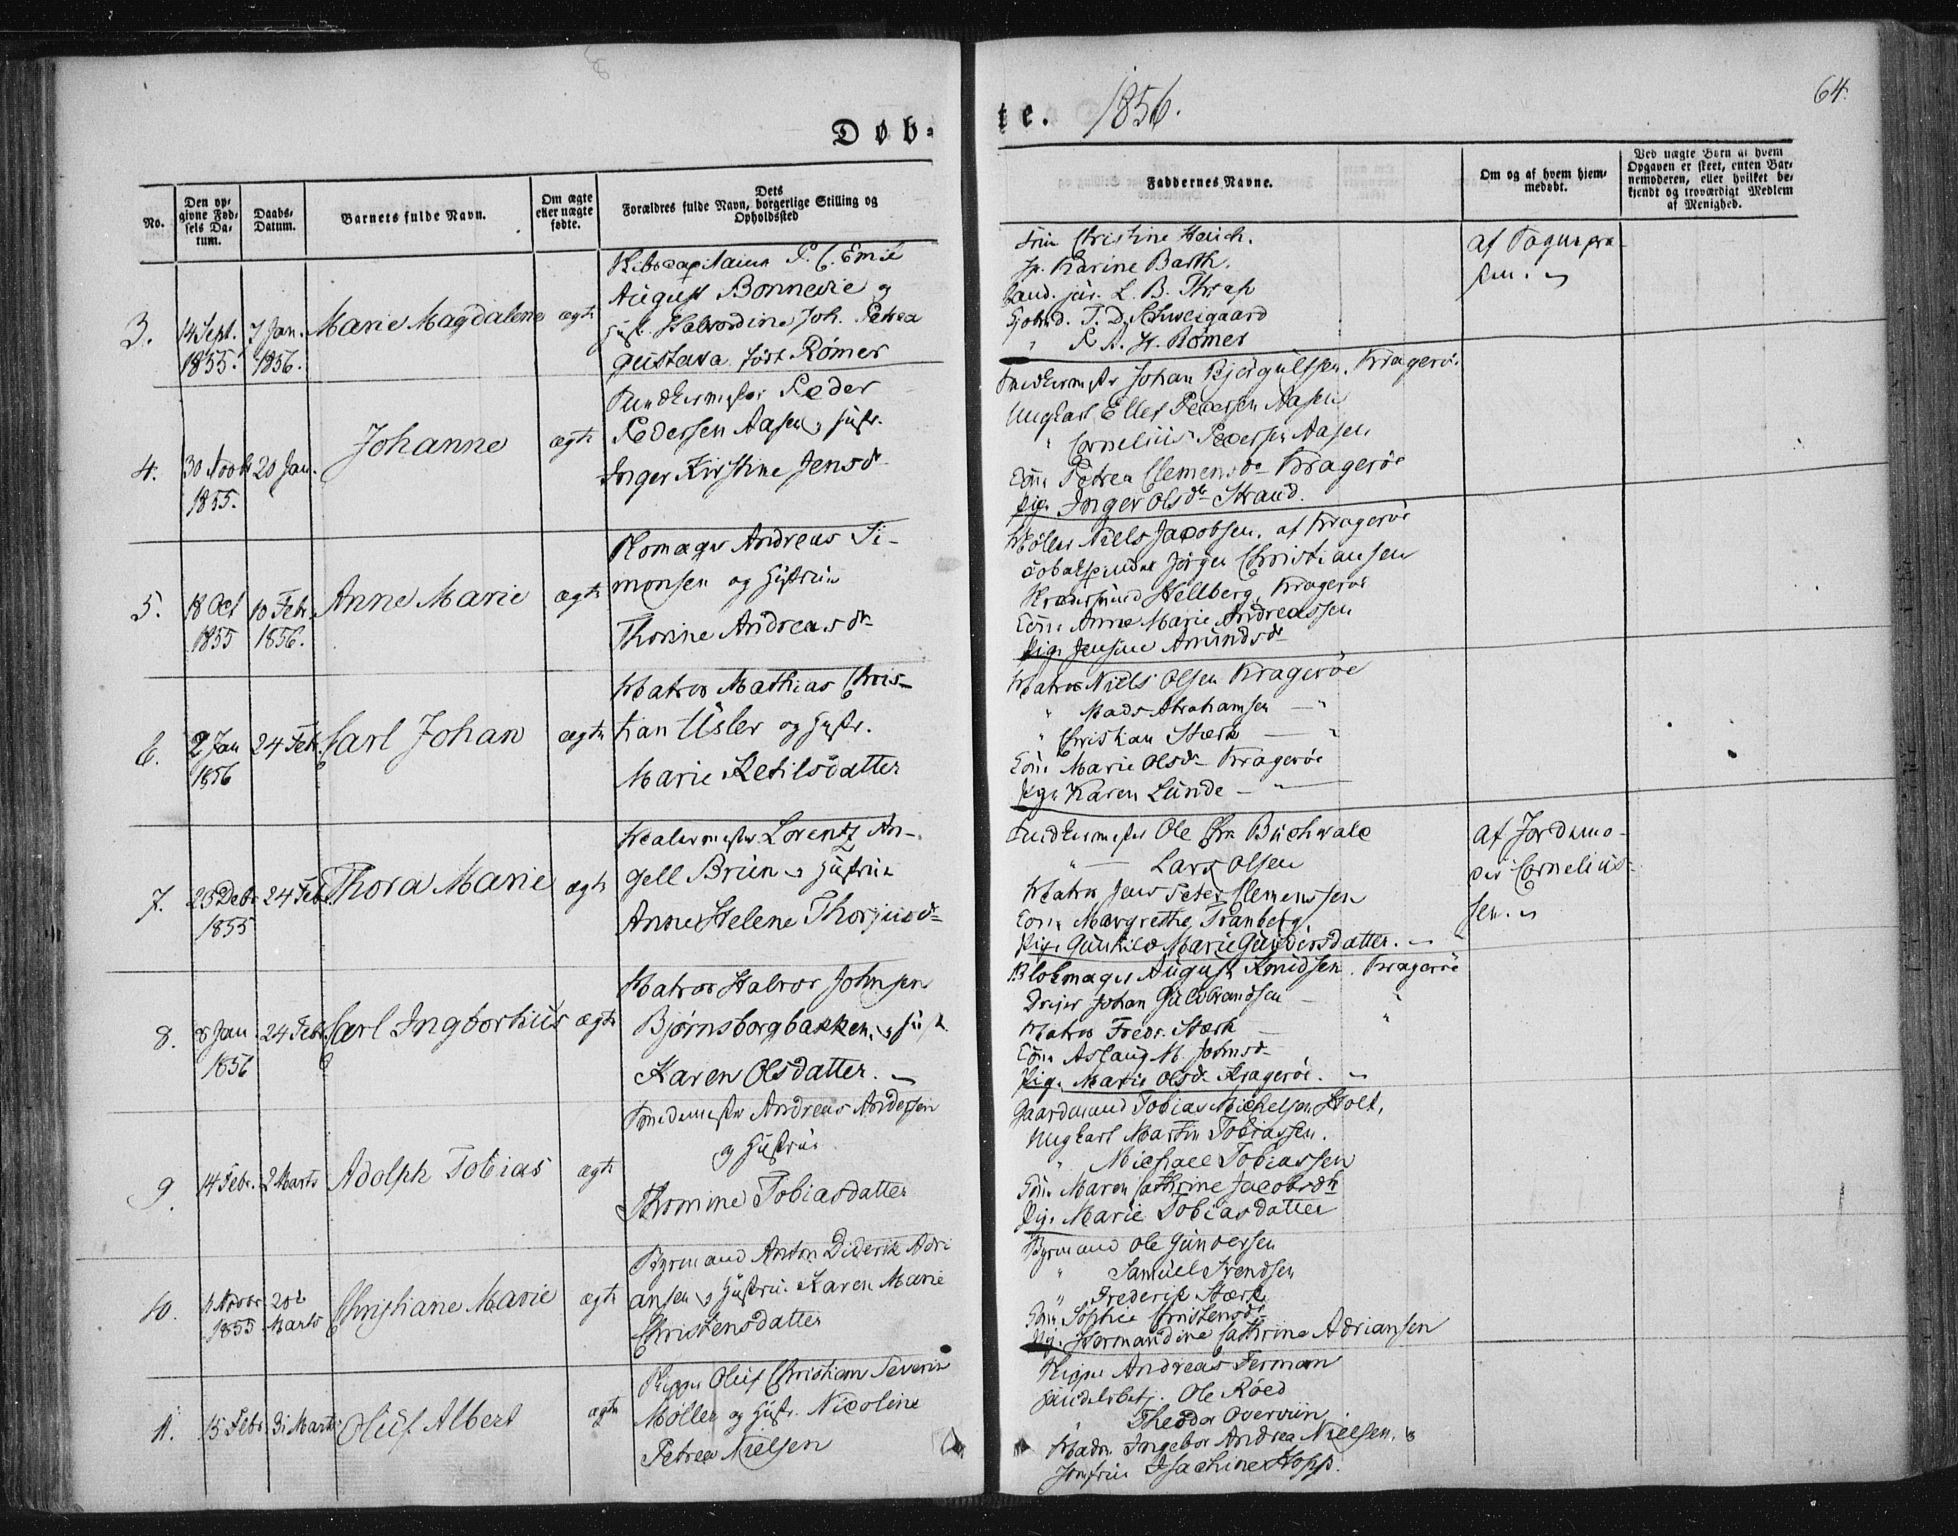 64.
Døb-
te. 1856.
No.
Den op-
givne Fød-
sels Da-
tum.
Daabs-
Datum.
Barnets fulde Navn.
Om ægte
eller uægte
fødte.
Dets
Forældres fulde Navn, borgerlige Stilling og
Opholdssted
Faddernes Navne.
Om og af hvem hjem-
medøbt.
Ved uægte Børn af hvem
Opgaven er skeet, enten Bar-
nemoderen, eller hvilket be-
kjendt og troværdigt Medlem
af Menighed.
3.
14 Sept.
1855.
7 Jan.
1856.
Marie Magdalene
ægte
Skibscapitaine P. C. Emil
August Bonnevie og
Hust. Halvordine Joh. Petrea
Gustava født Rømer
Frue Christine Heuch.
Fr. Karine Barth.
Cand. jur. L. B. Thrap
Kjøbmd. T. D. Schweigaard
" P. A. H. Rømer
af Sognepræ-
sten.
4.
30 Novbr
1855.
20 Jan.
Johanne
ægte
Snedkermester Peder
Pedersen Aasen og Hustr.
Inger Kirstine Jensdr
Snedkermester Johan Bjørgulfsen. Kragerø.
Ungkarl Ellef Pedersen Aasen
" Cornelius Pedersen Aasen
Cone Petrea Clemensdr Kragerøe
Pige Inger Olsdr Strand.
5.
18 Oct
1855
10 Febr.
1856.
Anne Marie
ægte
Skomager Andreas Si-
monsen og Hustrue
Thorine Andreasdr
Møller Niels Jacobsen. af Kragerøe
Tobakspinder Jørgen Christiansen
Skrædersvend Hellberg, Kragerøe
Cone Anne Marie Andreassen
Pige Jensine Amundsdr
6.
2 Jan
1856
24 Febr.
Carl Johan
ægte
Matros Mathias Chris-
tian Usler og Hustr.
Marie Ketilsdatter
Matros Niels Olsen Kragerøe
" Mads Abrahamsen — "
" Christian Stærk — "
Cone Marie Olsdr Kragerøe
Pige Karen Lunde — "
7.
Debr
1855
24 Febr.
Thora Marie
ægte
Malermester Lorentz An-
gell Bruun og Hustrue
Anne Helene Thorjusdr
Snedkermester Ole Chr. Buchwald
" — Lars Olsen
Matros Jens Peter Clemenssen
Cone Margrethe Tranberg
Pige Gunhild Marie Gundersdatter. —
af Jordemo-
der Cornelius-
sen.
8.
8 Jan.
1856
24 Febr.
Carl Ingbortius
ægte
Matros Halvor Johnsen
Bjørnsborgbakken, og Hust.
Karen Olsdatter. —
Blokmager August Knudsen. Kragerøe
Dreier Johan Gulbrandsen — "
Matros Fredr. Stærk — "
Cone Aslaug M. Johnsdr
Pige Marie Olsdr Kragerøe. —
9.
14 Febr.
2 Marts
Adolph Tobias
ægte
Smedemester Andreas Andersen
og Hustrue
Thomine Tobiasdatter
Gaardmand Tobias Michelsen Holt.
Ungkarl Martin Tobiassen.
" Michael Tobiassen
Cone Maren Cathrine Jacobsdtr
Pige Marie Tobiasdatter
10.
Novbr
1855
Marts
Christiane Marie
ægte
Styrmand Anton Diderik Adri
ansen og Hustru. Karen Marie
Christensdatter
Styrmand Ole Gundersen
" Samuel Svendsen
" Frederik Stærk
Cone Sophie Christensdr
Pige Hermandine Cathrine Adriansen
11.
15 Febr.
31 Marts
Oluf Albert
ægte
Skipper Oluf Christian Severin
Møller og Hustr. Nicoline
Petrea Nielsen
Skipper Andreas Ferman
Handelsbetj. Ole Røed
Theodor Overvien
Madm. Ingebor Andrea Nielsen. og
Jomfrue Isachine Hopp.